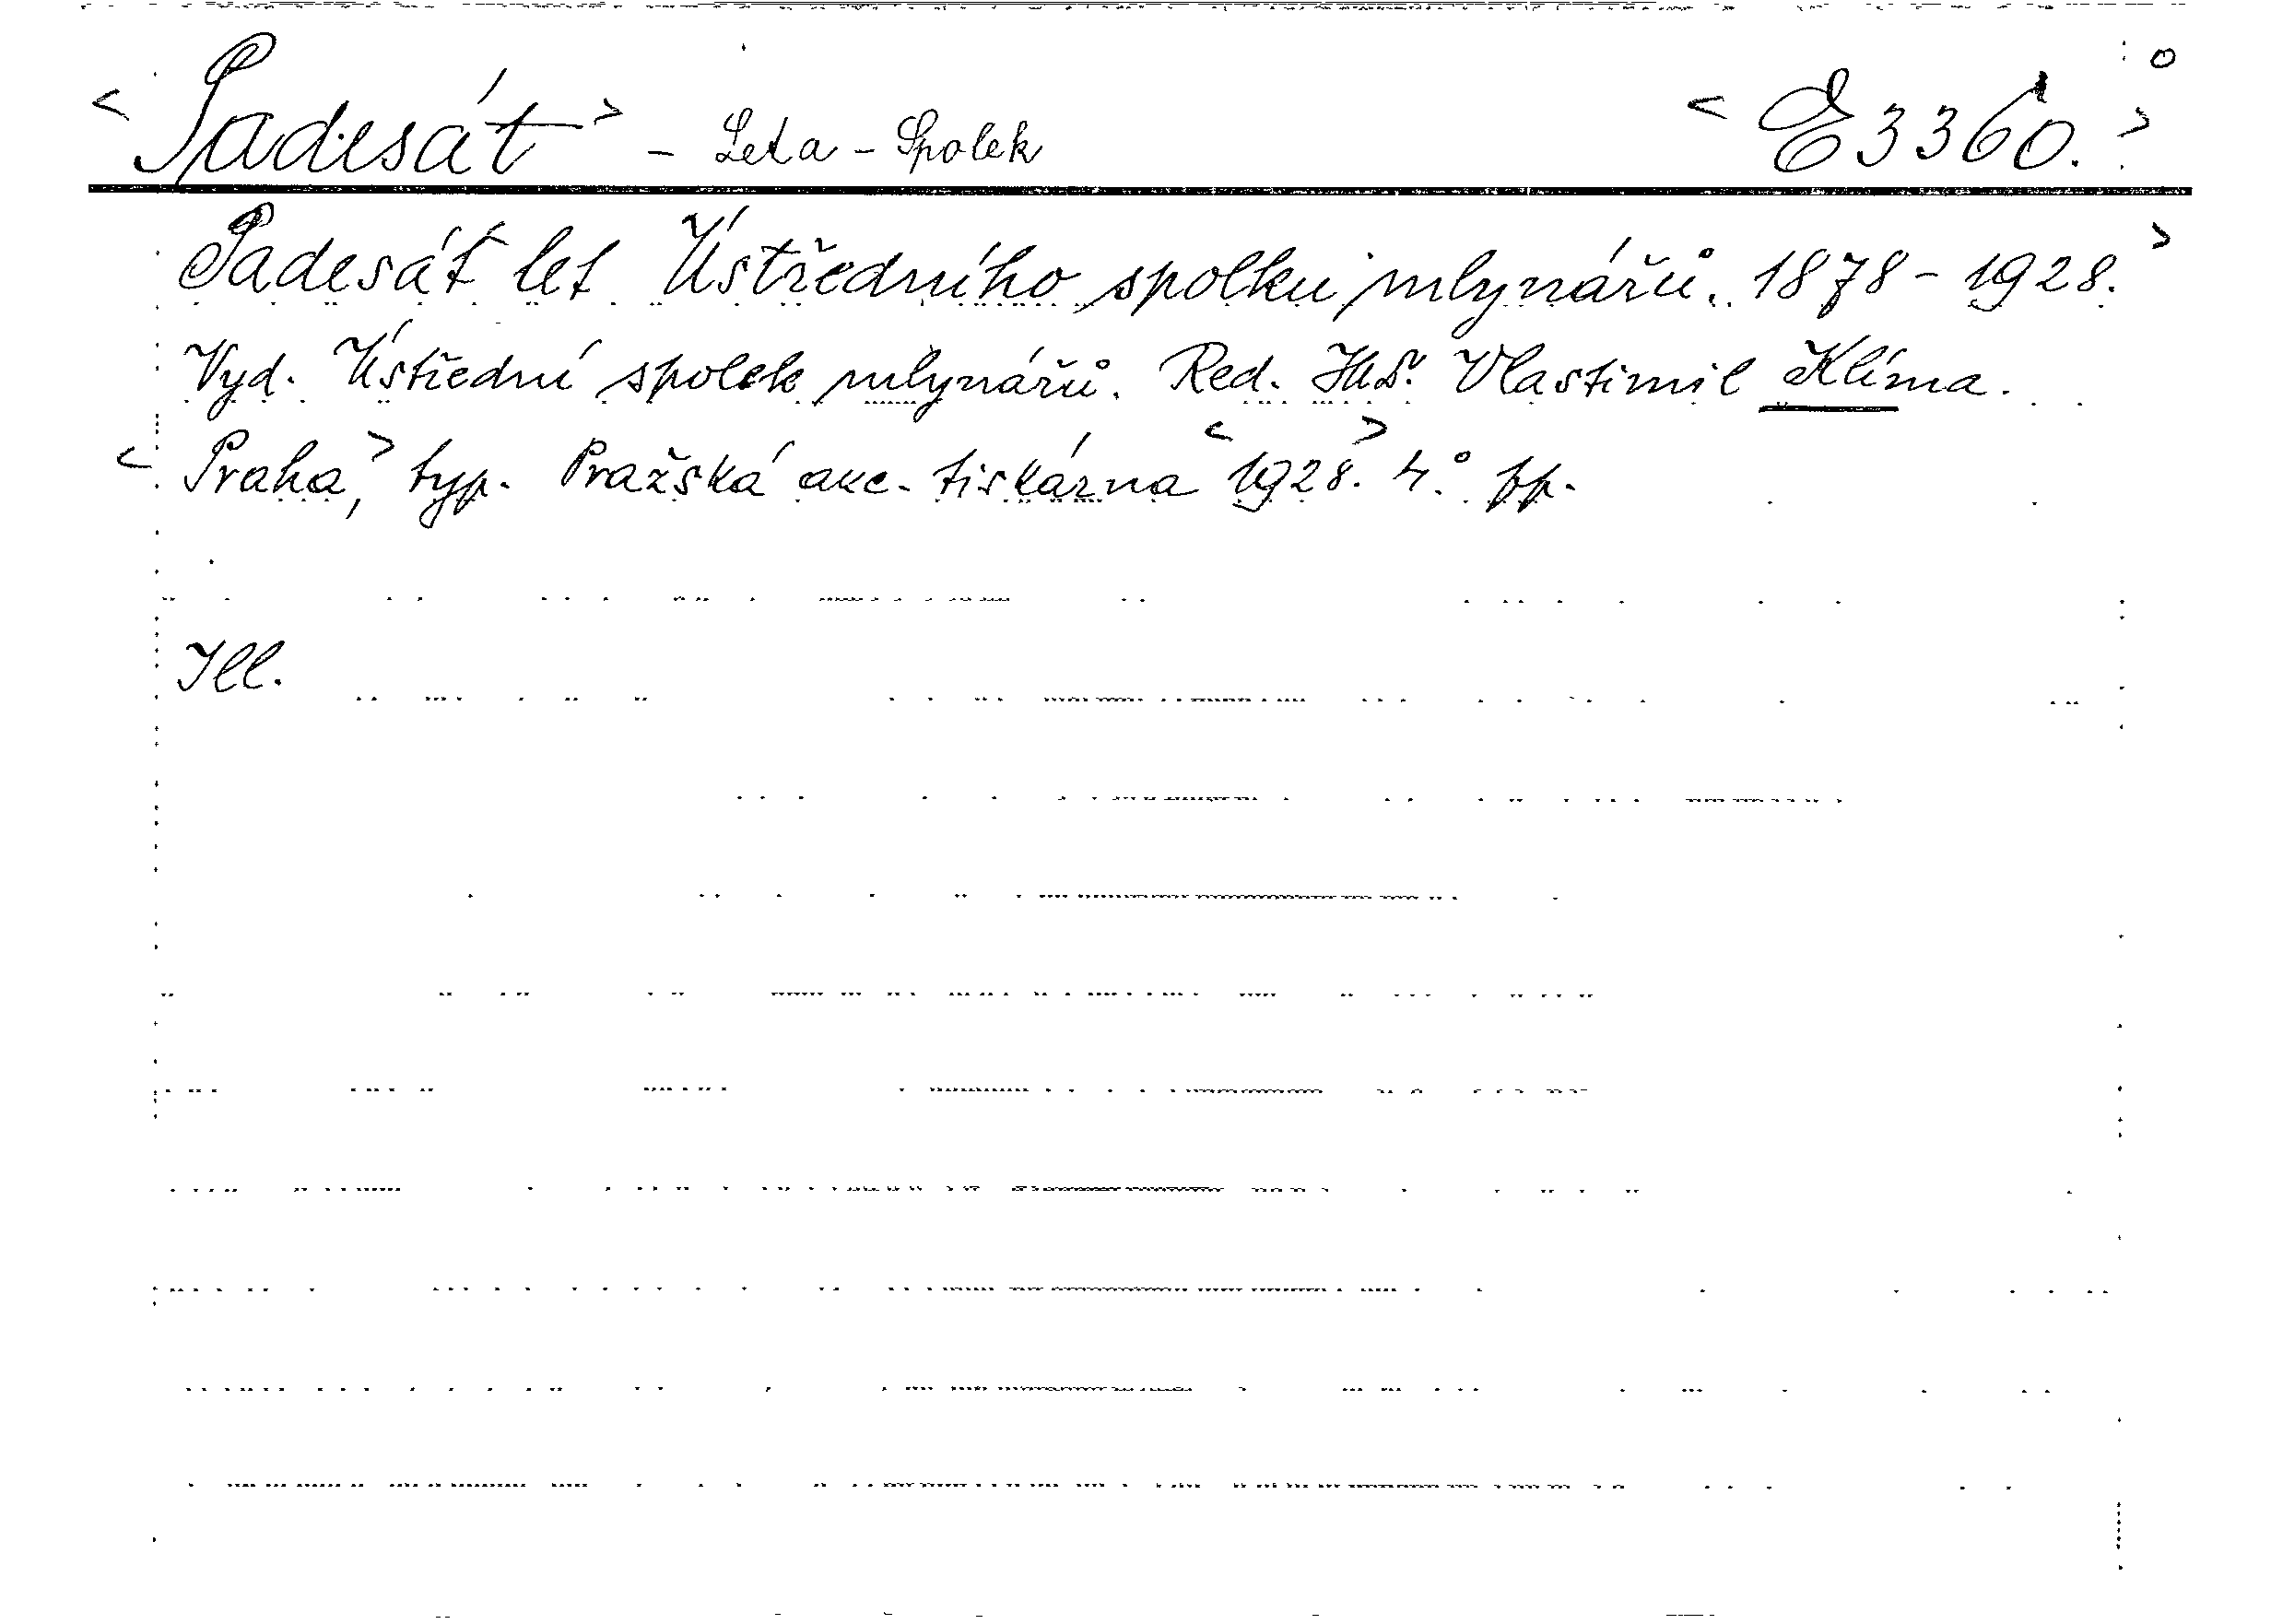 <Padesát> - Leta - Spolek <E 3360.>
Padesát let Ústředního spolku mlynářů. 1878 - 1928.>
Vyd. Ústřední spolek mlynářů. Red. JUDr. Vlastimil Klíma.
<Praha,> typ. Pražská akc. tiskárna <1928.> 4.°
Ill.